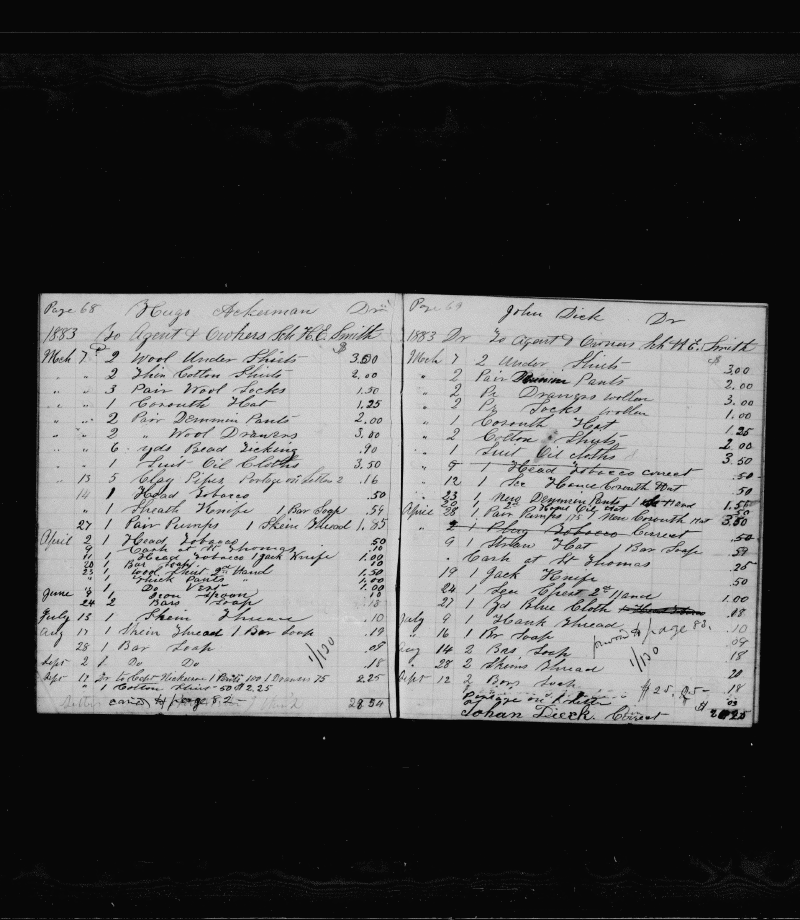 Page 68 Hugo Ackerman Dr
1883 To Agent & Owners Sch H.E. Smith
Mch 7 2 Wool Under Shirts $ 3.00
" " 2 Thin Cotton Shirts 2.00
" " 3 Pair Wool Socks 1.50
" " 1 Cornouth Hat 1.25
" " 2 Pair Demmin Pants 2.00
" " 2 " Wool Drawers 3.00
" " 6 yds Bead Ticking .90
" " 1 Suit Oil Cloths 3.50
" 13 5 Clay Pipes Postage on Letters 2 .16
14 1 Head Tobacco .50
" 1 Sheath Knife 1 Bar Soap .59
27 1 Pair Pumps 1 Skein Thread 1.85
April 2 1 Head Tobacco .50
9 Cash at St Thomas .10
11 1 Head Tobacco 1 Jack Knife 1.00
20 1 Bar Soap .10
23 1 Wool Shirt 2nd Hand 1.50
" 1 Thick Pants " 1.00
" 1 Do Vest 1.00
June 9 1 Iron Spoon .10
24 2 Bars Soap .18
July 15 1 Skein Thread .10
Aug 17 1 Skein Thread 1 Bar Soap .19
28 1 Bar Soap .09
1/130
Sept 2 2 Do Do .18
Sept 12 Dr to Capt Nickerson 1 Pants 100 1 Drawers 75 2.25
" 1 Cotton Shirt 50 $2.25
card to page 82 28.54
Page 69 John Dick Dr
1883 Dr To Agent & Owners Sch H.E. Smith
Mch 7 2 Under Shirts $ 3.00
" 2 Pair Demmin Pants 2.00
" 2 Pr Drawers wollen 3.00
" 2 Pr Socks wollen 1.00
" 1 Cornouth Hat 1.25
" 2 Cotton Shirts 2.00
" 1 Suit Oil cloths 3.50
" 8 1 Head Tobacco correct .50
" 12 1 Sec Hance Cornouth Hat .50
" 23 1 New Demmin Pants 1 Head 1.55
" 20 1 2d Hand Oil Hat .50
April 28 1 Pair Pumps 175 1 New Cornouth Hat 3.00
" 2 1 Plug Tobacco Correct .50
9 1 Straw Hat 1 Bar Soap .59
" Cash at St Thomas .25
19 1 Jack Knife .50
24 1 Sea Chest 2d Hance 1.00
27 1 Yd Blue Cloth .18
July 9 1 Hank Thread .10
forward to page 83.
" 16 1 Br Soap .09
Aug 14 2 Brs Soap .18
1/130
" 28 2 Skeins Thread .20
Sept 12 2 Bars Soap $25.25 .18
Postage on 1 letter .03
Johan Dieck. Correct $